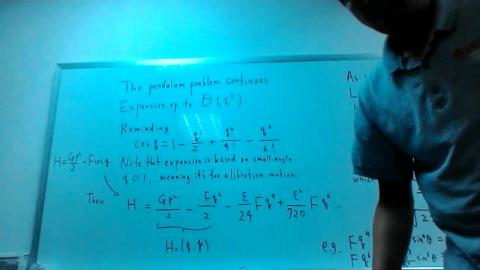 The pendulum problem continues
Expansion up to O(ε²)
Reminding
cos q = 1 - q²/2 + q⁴/4! - q⁶/6!
H = Gp²/2 - F cos q
Note that expansion is based on small angle
q << 1, meaning it's for a libration motion.
Then H = Gp²/2 - Fq²/2 - ε/24 F q⁴ + ε²/720 F q⁶ ...
H₀(q, p)
As
L
which
√2
e.g. F q⁴
F q⁶
sin⁴θ =
sin⁶θ =